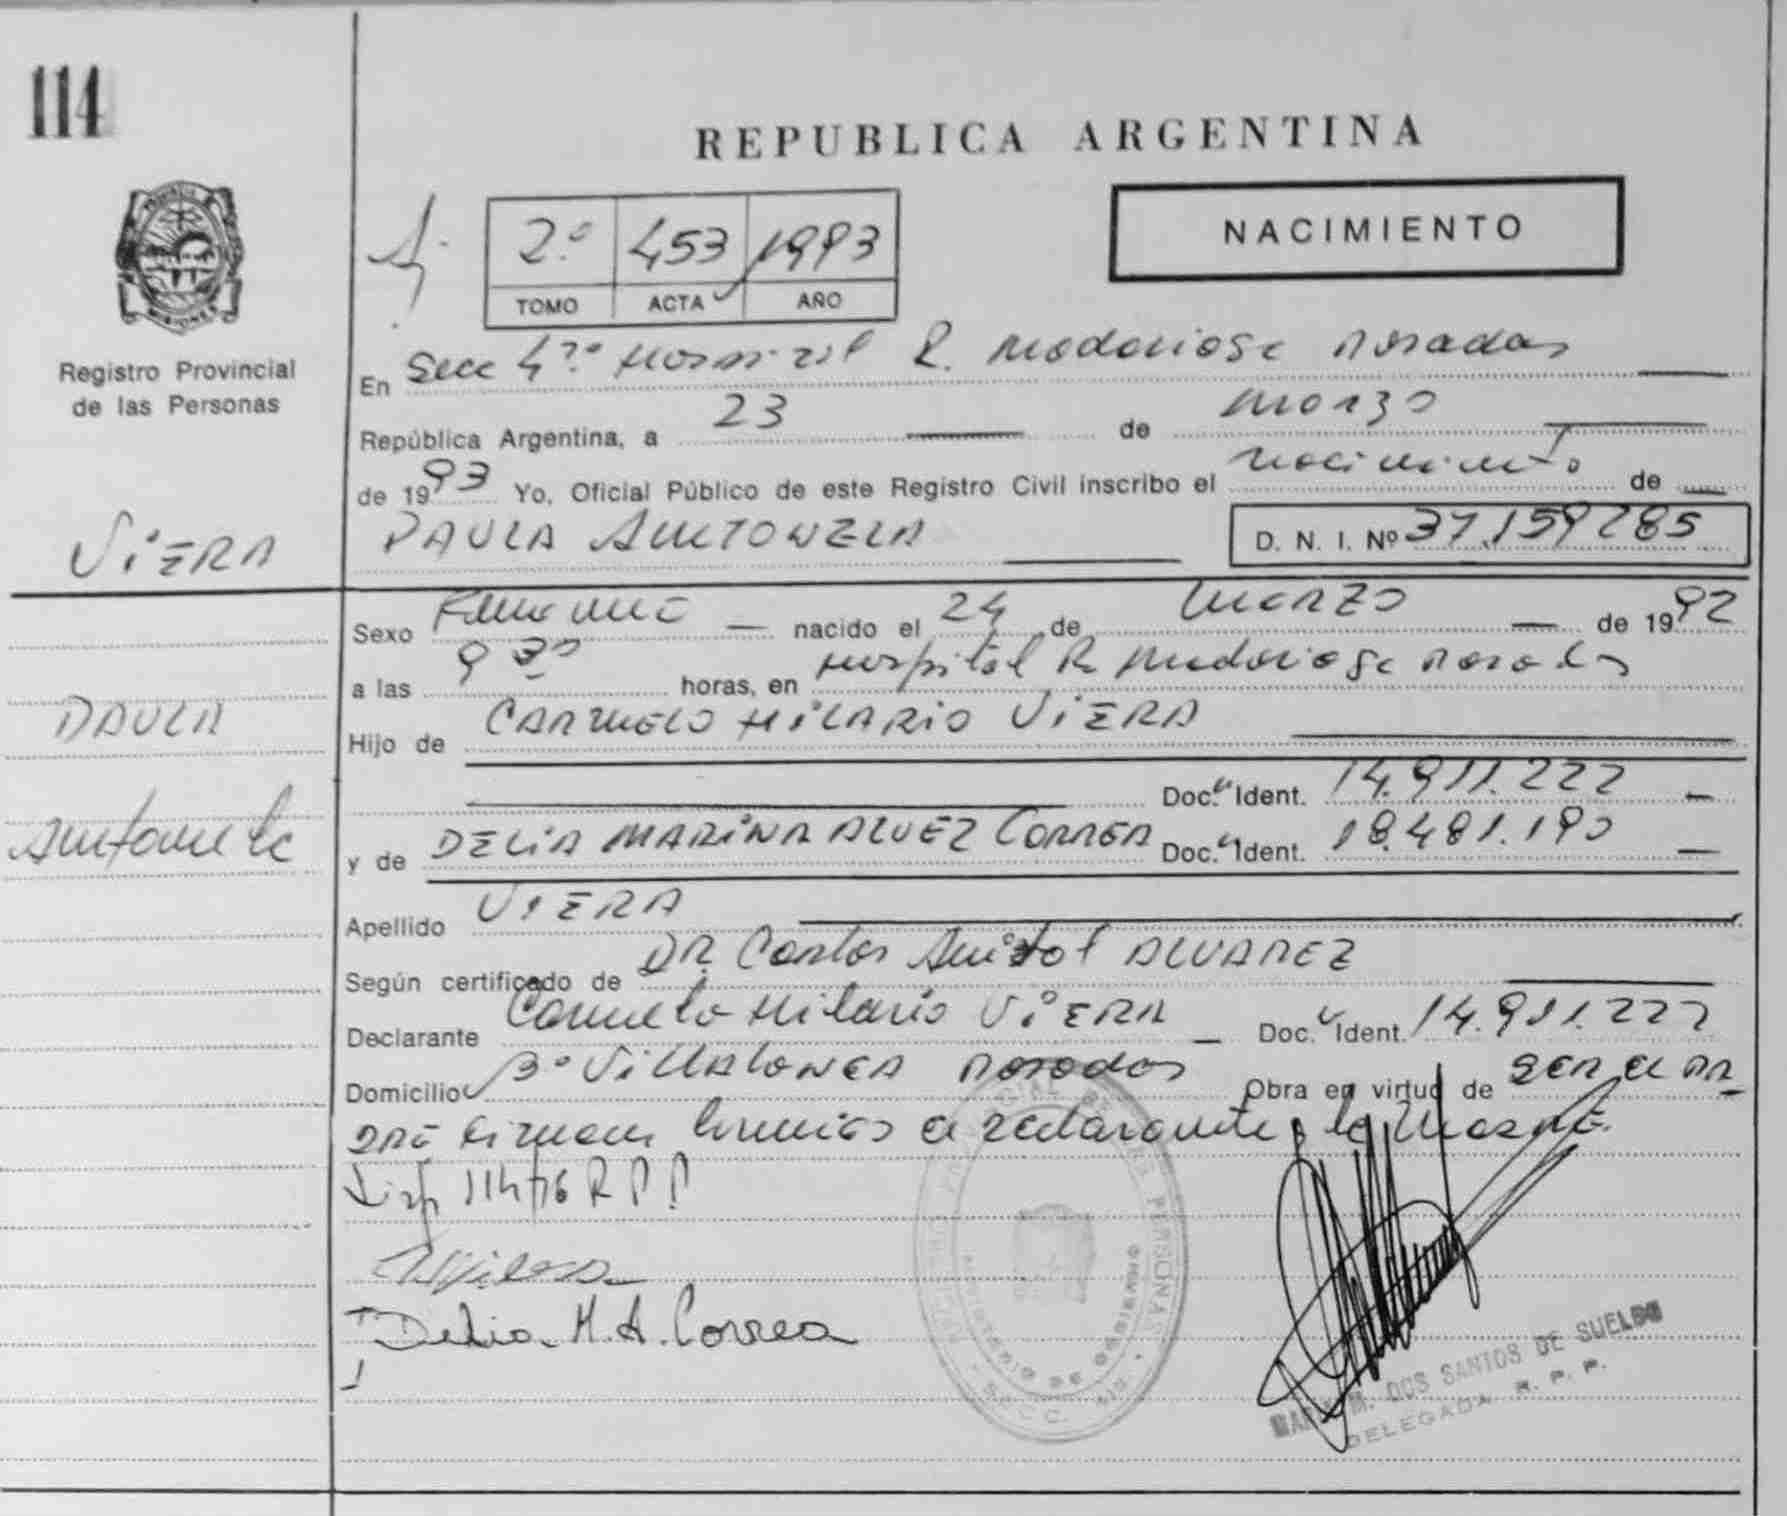 114
REPUBLICA ARGENTINA
NACIMIENTO
2º 453 1993
TOMO ACTA AÑO
MISIONES
Registro Provincial
de las Personas
En Secc 4ª Hospital R. Madariaga Posadas
República Argentina, a 23 de Marzo
de 1993 Yo, Oficial Público de este Registro Civil inscribo el nacimiento de
VIERA
PAULA ANTONELA D. N. I. Nº 37.159285
Sexo Femenino nacido el 24 de Marzo de 1992
a las 9 30 horas, en Hospital R Madariaga Posadas
PAULA
Hijo de CARMELO HILARIO VIERA
Doc. Ident. 14.911.222
Antonela
y de DELIA MARINA ALVEZ CORREA Doc. Ident. 18.481.190
Apellido VIERA
Según certificado de DR. Carlos ALVAREZ
Declarante Carmelo Hilario VIERA Doc. Ident. 14.911.222
Domicilio Bº VILLALONGA Posadas Obra en virtud de ser el PA
DRE firman el declarante y la Madre.
Disp 114/76 R P P
Delia M. A. Correa
DOS SANTOS DE SUELDO
DELEGADA R. P. P.